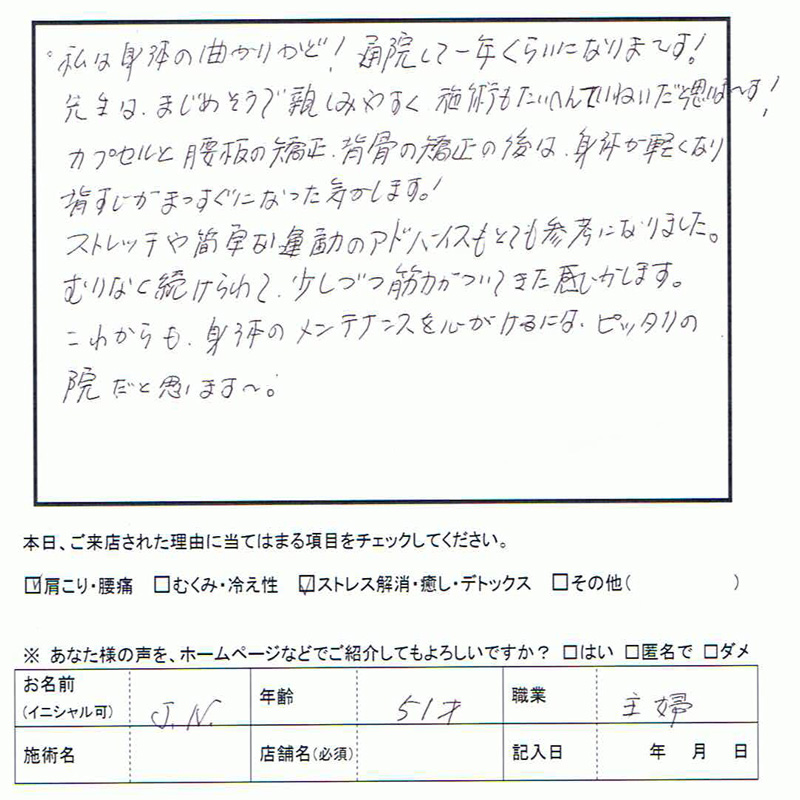 。私は身体の曲がりかど!通院して一年くらいになりまーす!
先生は、まじめそうで親しみやすく、施術もたいへんていねいだと思いまーす!
カプセルと腰板の矯正、背骨の矯正の後は、身体が軽くなり
背すじがまっすぐになった気がします。!
ストレッチや簡単な運動のアドバイスもとても参考になりました。
むりなく続けられて、少しづつ筋力がついてきた感じがします。
これからも、身体のメンテナンスを心がけるには、ピッタリの
院だと思います〜。
本日、ご来店された理由に当てはまる項目をチェックしてください。
☑肩こり・腰痛 □むくみ・冷え性 ☑ストレス解消・癒し・デトックス □その他( )
※ あなた様の声を、ホームページなどでご紹介してもよろしいですか? □はい □匿名で □ダメ
お名前(イニシャル可) J.N. 年齢 51才 職業 主婦
施術名 店舗名(必須) 記入日 年 月 日